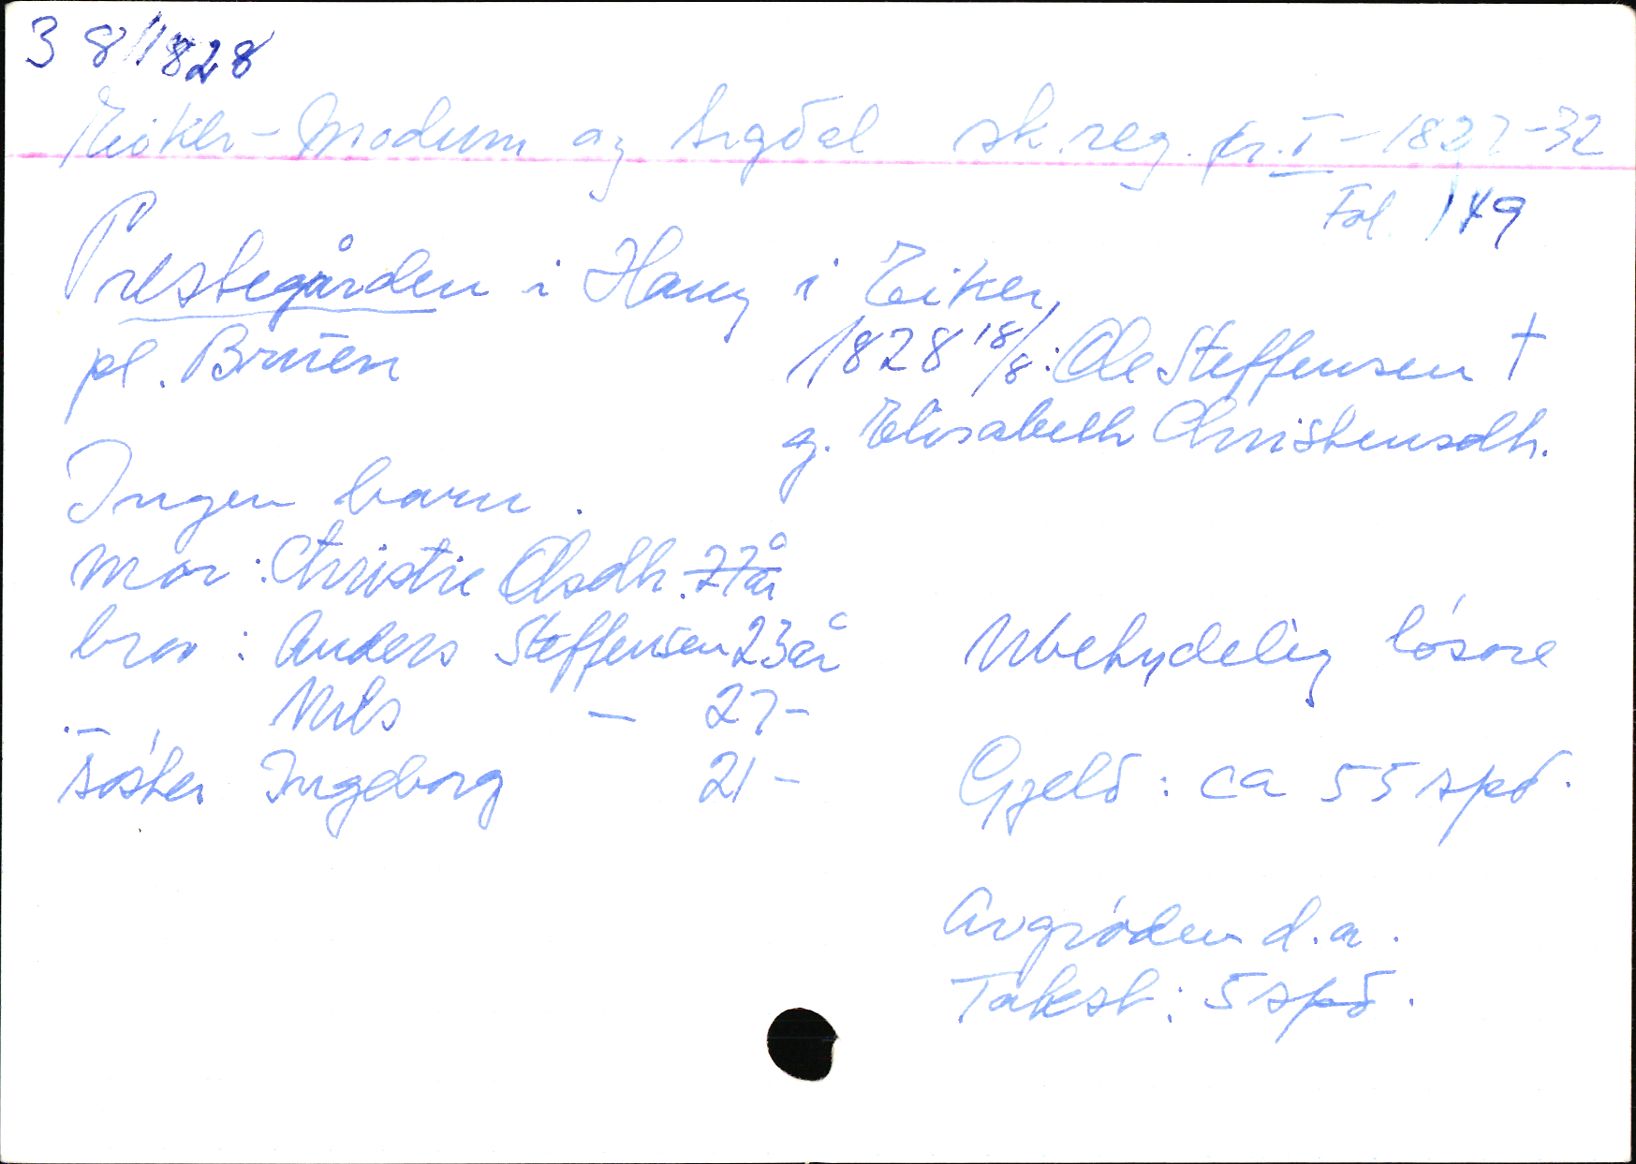 3 8/1828
Eiker-Modum og Sigdal sk.reg. pr. I - 1827-32
Fol. 149
Prestegården i Haug i Eiker,
pl. Bruen 1828 18/8: Ole Steffensen †
g. Elisabeth Christensdh.
Ingen barn.
Mor: Christie Olsdh. 77 år
bror: Anders Steffensen 23 år Ubetydelig lósöre
.- Nils — 27-
Sóster Ingeborg 21- Gjeld: ca 55 spd.
Avgróden d.a.
Takst: 5 spd.